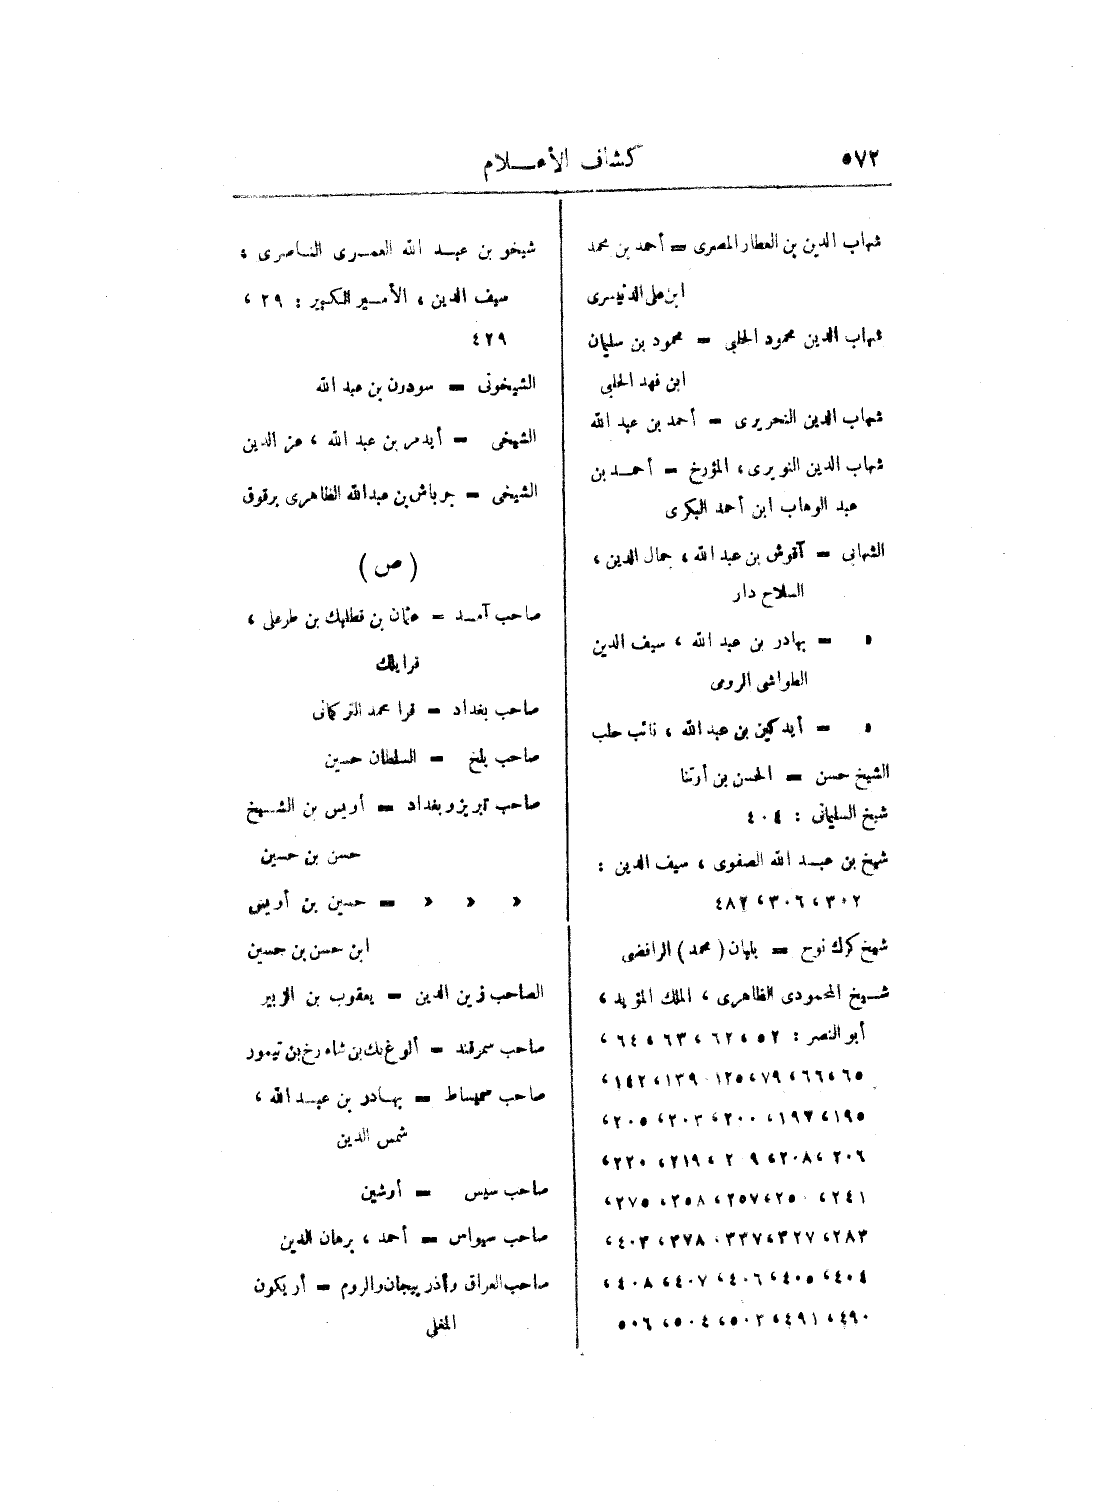 ٥٧٢
كشاف الأعلام
شهاب الدين بن العطار المصرى = أحمد بن محمد
ابن على الدنيسرى
شهاب الدين محمود الحلبي = محمود بن سليمان
ابن فهد الحلبي
شهاب الدين النحريرى = أحمد بن عبد الله
شهاب الدين النويرى، المؤرخ = أحمد بن
عبد الوهاب ابن أحمد البكرى
الشهابى = آقوش بن عبد الله، جمال الدين،
السلاح دار
» = بهادر بن عبد الله، سيف الدين
الطواشى الرومى
» = أيدكين بن عبد الله، نائب حلب
الشيخ حسن = الحسن بن أرتنا
شيخ السليمانى : ٤٠٤
شيخ بن عبد الله الصفوى، سيف الدين :
٣٠٢، ٣٠٦، ٤٨٢
شيخ كرك نوح = بلبان (محمد) الرافضى
شيخ المحمودى الظاهرى، الملك المؤيد،
أبو النصر : ٥٢، ٦٢، ٦٣، ٦٤،
٦٥، ٦٦، ٧٩، ١٢٥، ١٣٩، ١٤٢،
١٩٥، ١٩٧، ٢٠٠، ٢٠٣، ٢٠٥،
٢٠٦، ٢٠٨، ٢٠٩، ٢١٩، ٢٢٠،
٢٤١، ٢٥٠، ٢٥٧، ٢٥٨، ٢٧٥،
٢٨٣، ٣٢٧، ٣٣٧، ٣٧٨، ٤٠٣،
٤٠٤، ٤٠٥، ٤٠٦، ٤٠٧، ٤٠٨،
٤٩٠، ٤٩١، ٥٠٣، ٥٠٤، ٥٠٦
شيخو بن عبد الله العمرى الناصرى،
سيف الدين، الأمير الكبير : ٢٩،
٤٢٩
الشيخونى = سودون بن عبد الله
الشيخى = أيدمر بن عبد الله، عز الدين
الشيخى = جرباش بن عبد الله الظاهرى برقوق
(ص)
صاحب آمد = عثمان بن قطلبك بن طرعلى،
قرايلك
صاحب بغداد = قرا محمد التركمانى
صاحب بلخ = السلطان حسين
صاحب تبريز وبغداد = أويس بن الشيخ
حسن بن حسين
» » » = حسين بن أويس
ابن حسن بن حسين
الصاحب زين الدين = يعقوب بن الزبير
صاحب سمرقند = ألوغ بك بن شاه رخ بن تيمور
صاحب سميساط = بهادر بن عبد الله،
شمس الدين
صاحب سيس = أوشين
صاحب سيواس = أحمد، برهان الدين
صاحب العراق وأذربيجان والروم = أريكون
المغلى